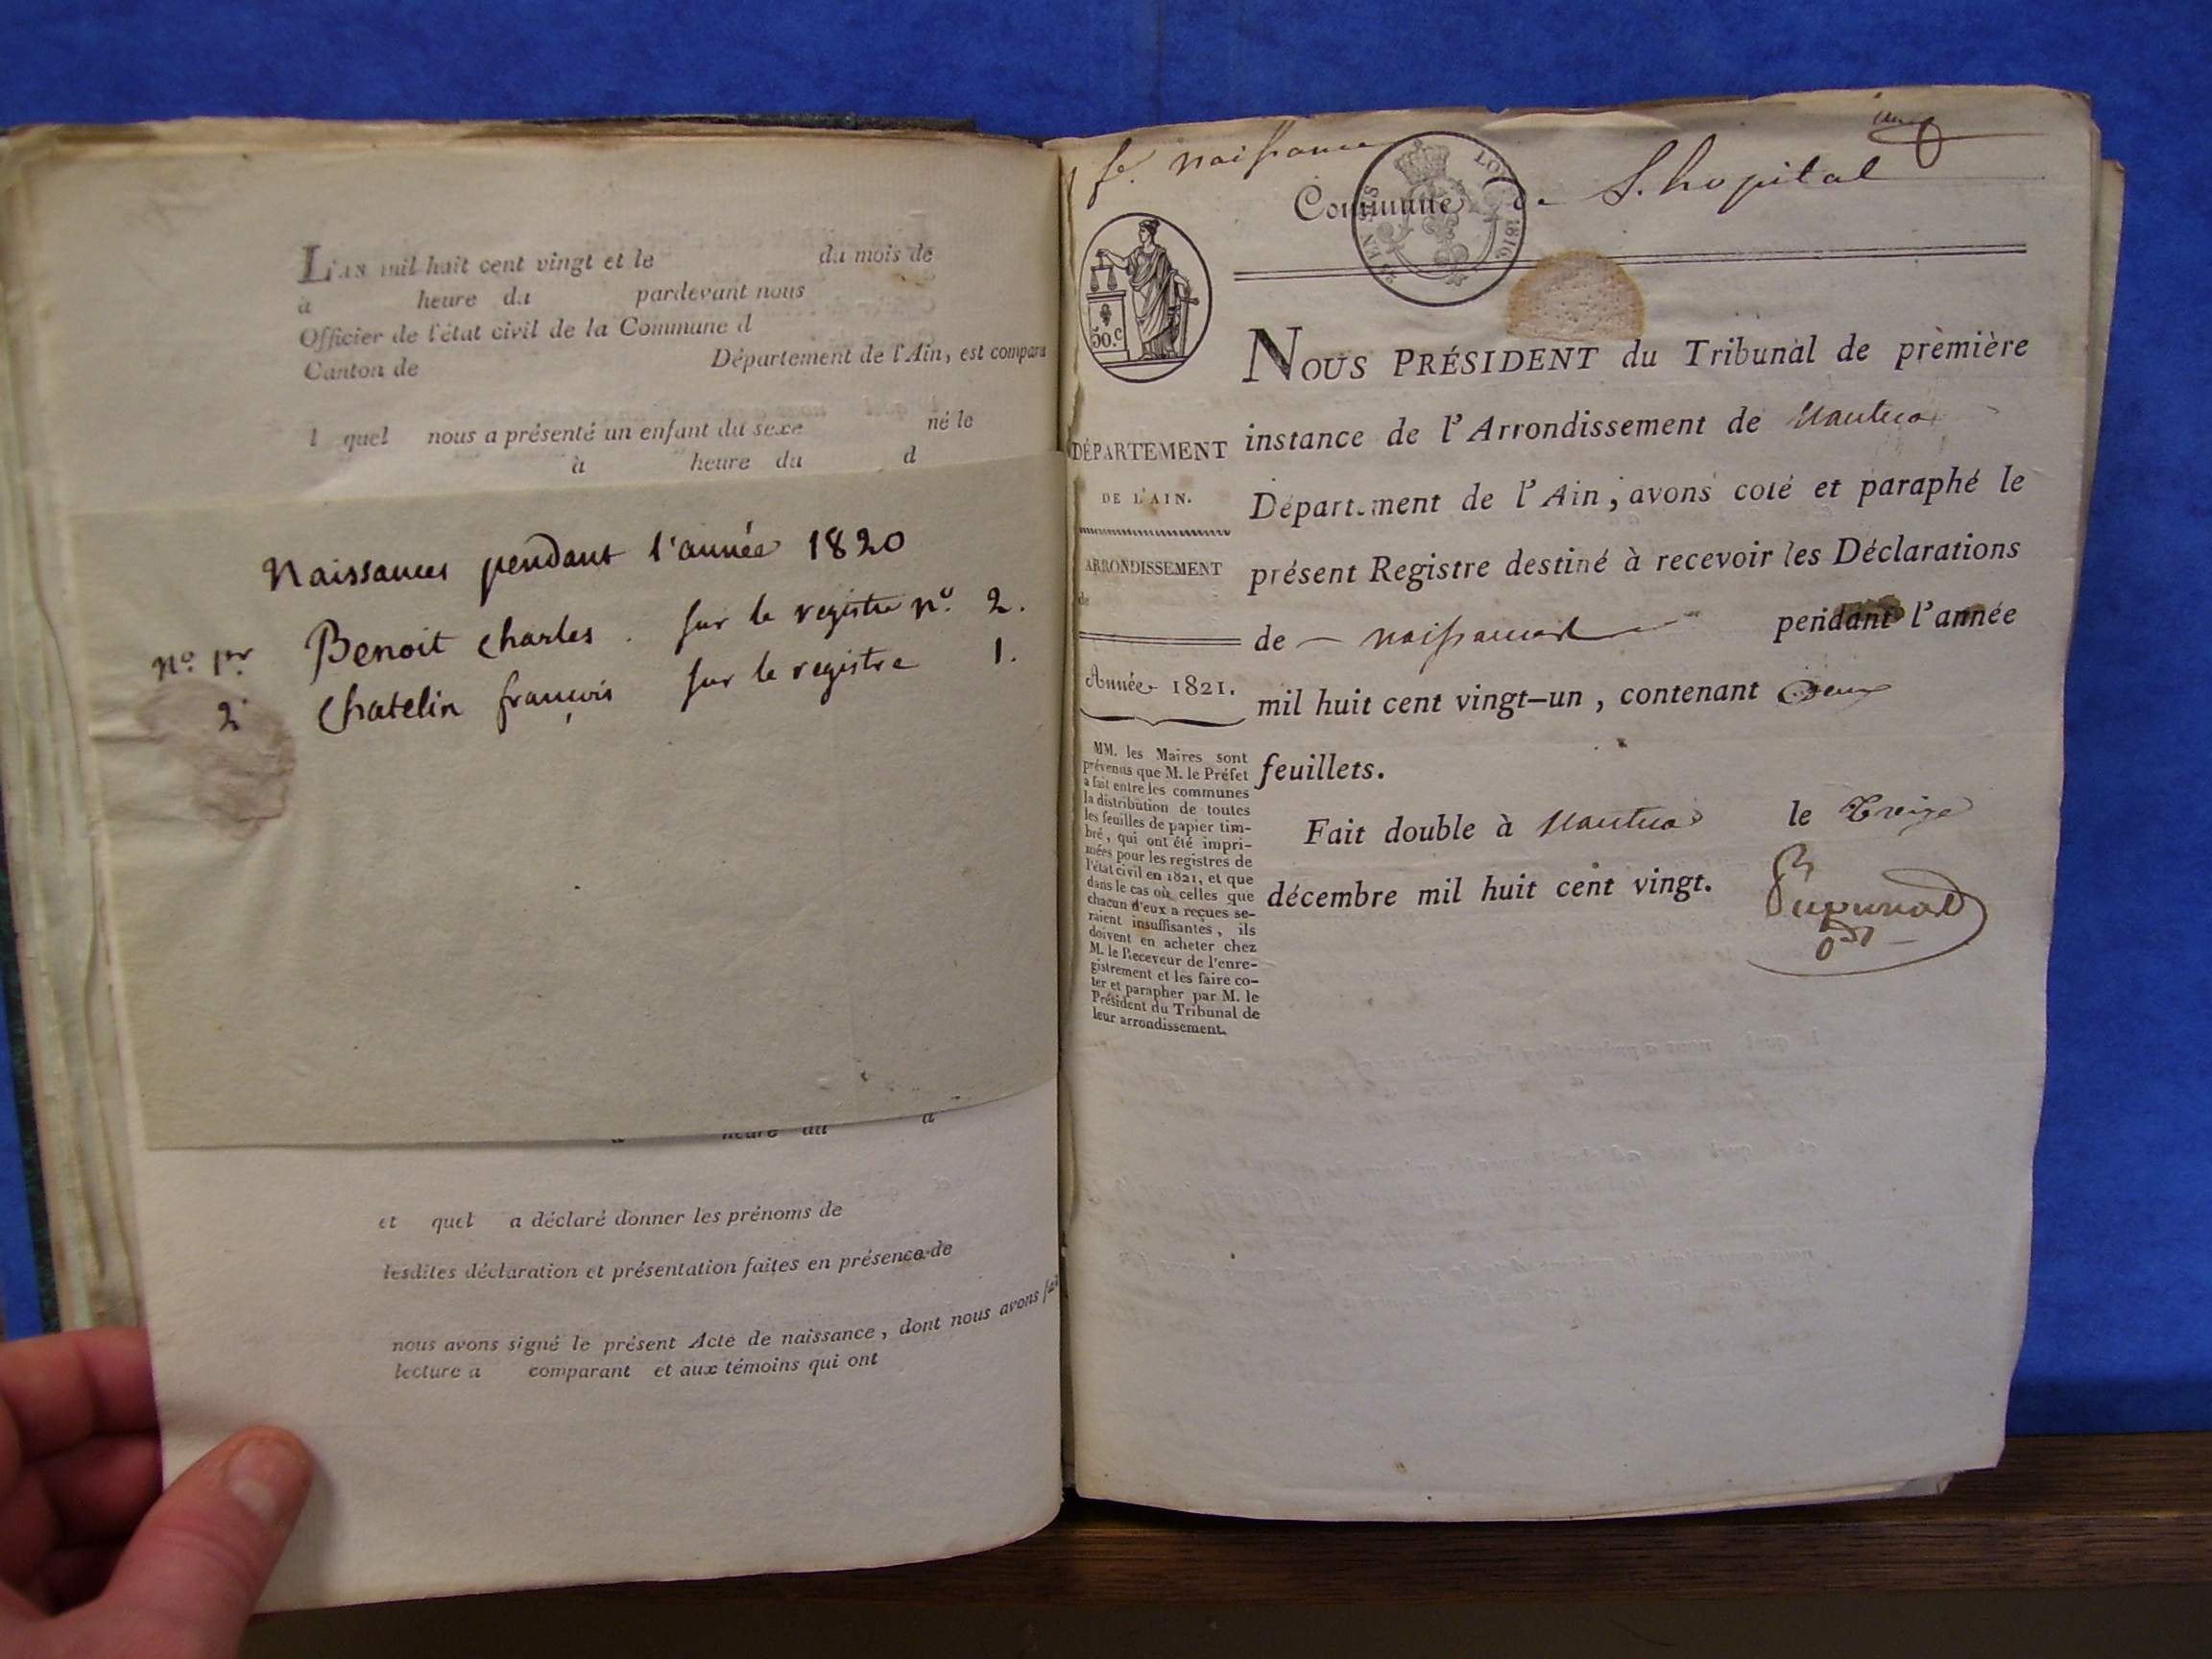 L'AN mil huit cent vingt et le du mois de
à heure du pardevant nous
Officier de l'état civil de la Commune d
Canton de Département de l'Ain, est compara
l quel nous a présenté un enfant du sexe né le
à heure du d
Naissances pendant l'année 1820
nº. 1er. Benoit Charles. sur le registre nº. 2.
2 Chatelin françois sur le registre 1.
heure du d
et quel a déclaré donner les prénoms de
lesdites déclaration et présentation faites en présence de
nous avons signé le présent Acte de naissance, dont nous avons fait
lecture a comparant et aux témoins qui ont
fe. naissance
Commune de L'hopital
50.C
NOUS PRÉSIDENT du Tribunal de prèmière
instance de l'Arrondissement de Nantua
Département de l'Ain, avons coté et paraphé le
présent Registre destiné à recevoir les Déclarations
de naissances pendant l'année
mil huit cent vingt-un, contenant Deux
feuillets.
Fait double à Nantua le Treize
décembre mil huit cent vingt.
DÉPARTEMENT
DE L'AIN.
ARRONDISSEMENT
de
Année 1821.
MM. les Maires sont
prévenus que M. le Préfet
a fait entre les communes
la distribution de toutes
les feuilles de papier tim-
bré, qui ont été impri-
mées pour les registres de
l'état civil en 1821, et que
dans le cas où celles que
chacun d'eux a reçues se-
raient insuffisantes, ils
doivent en acheter chez
M. le Receveur de l'enre-
gistrement et les faire co-
ter et parapher par M. le
Président du Tribunal de
leur arrondissement.